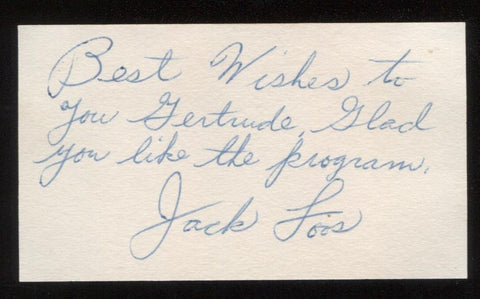 Best Wishes to
you Gertrude, Glad
you like the program.
Jack Loos